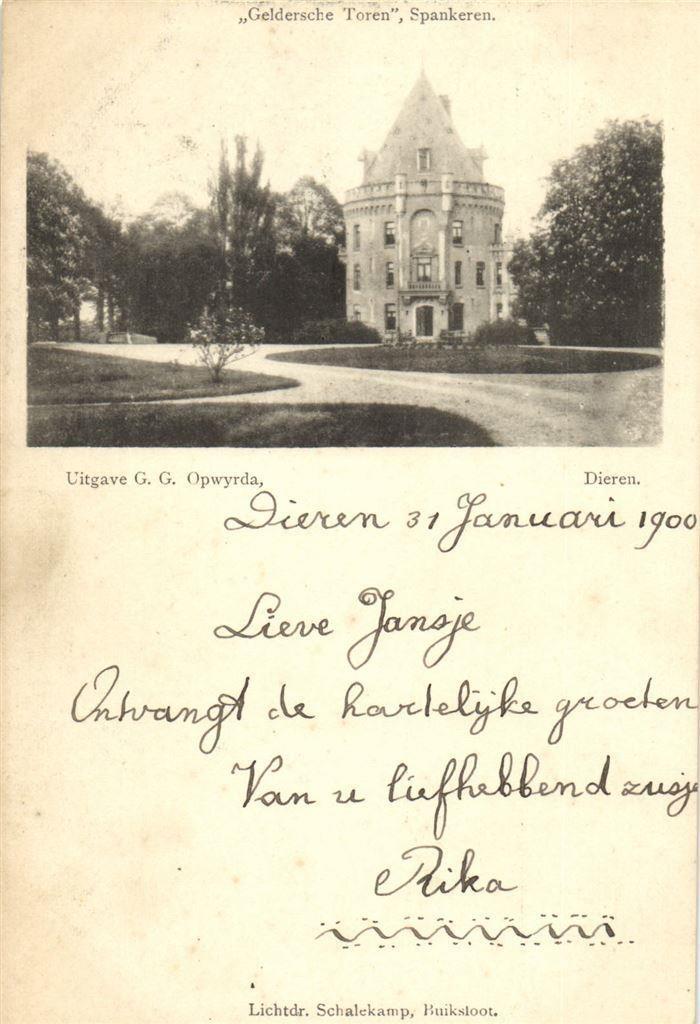 „Geldersche Toren”, Spankeren.
Uitgave G. G. Opwyrda, Dieren.
Dieren 31 Januari 1900
Lieve Jansje
Ontvangt de hartelijke groeten
Van u liefhebbend zusje
Rika
Lichtdr. Schalekamp, Buiksloot.